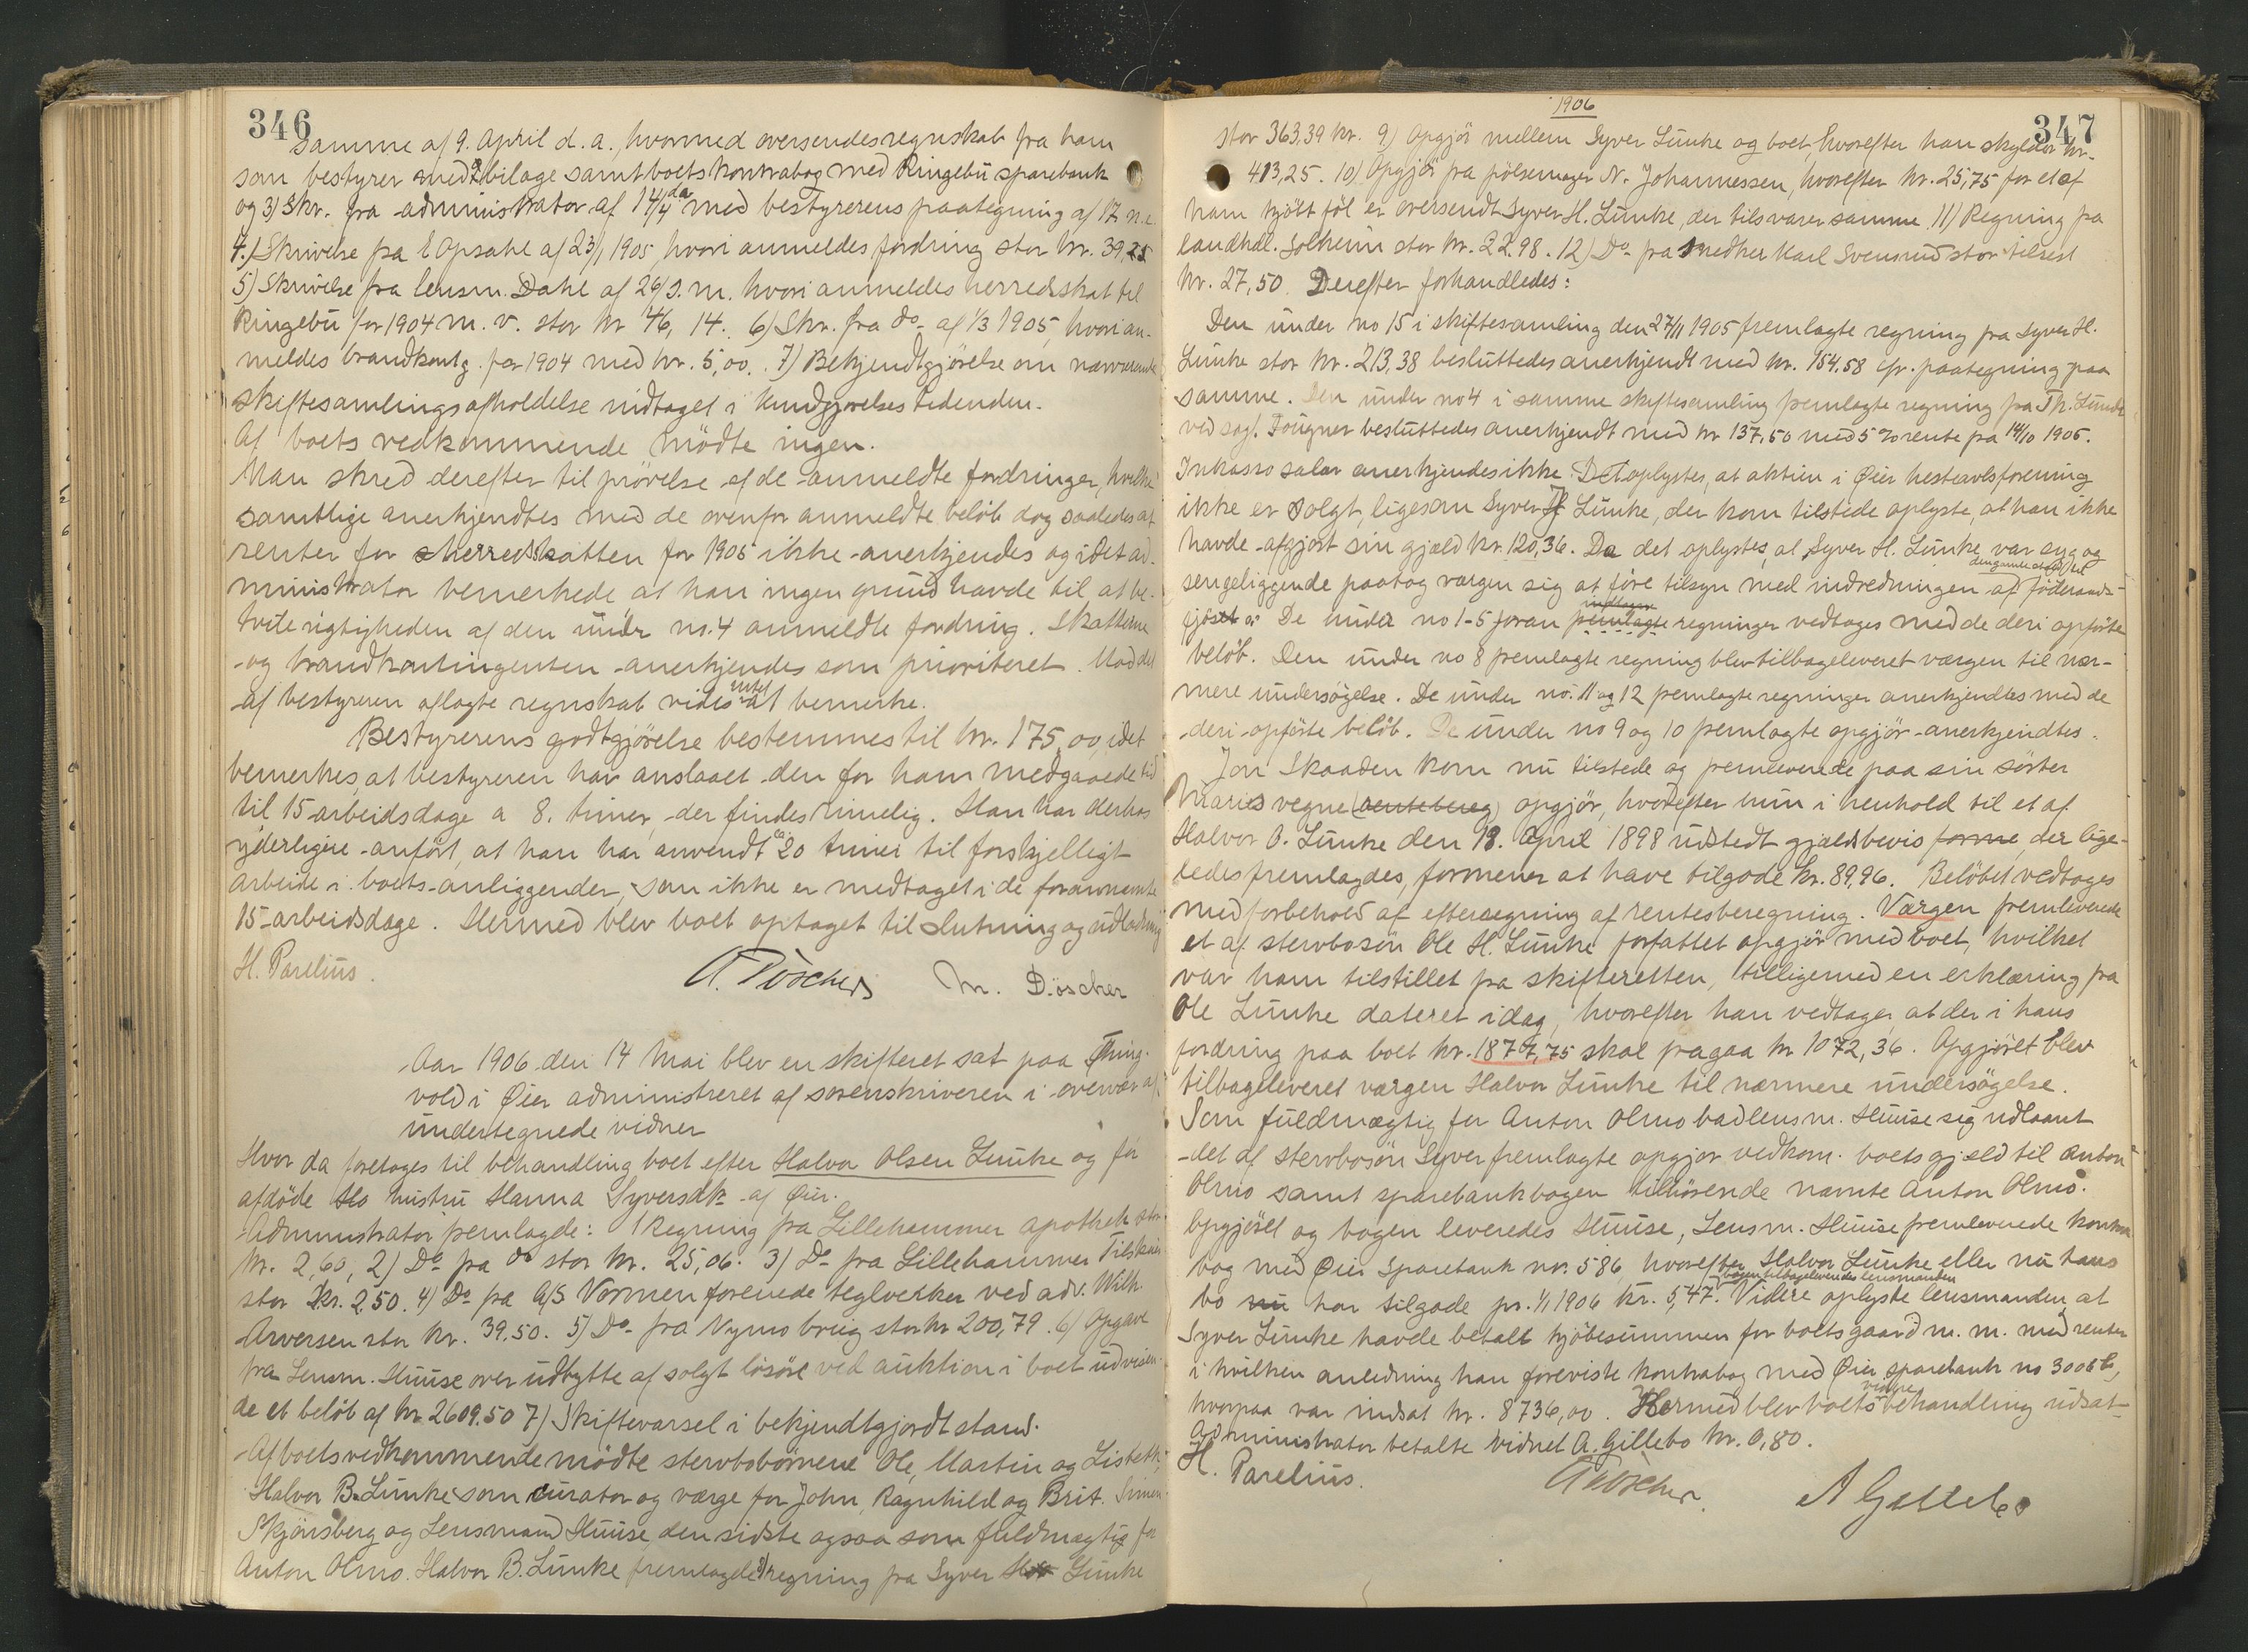 346
samme af 9. April d. a., hvormed oversendes regnskab fra ham
som bestyrer med 2 bilage samt boets kontrabog med Ringebu sparebank
og 3) Skr. fra administrator af 14/4 d.a. med bestyrerens paategning af 17 n.e.
4.) Skrivelse fra E Opsahl af 23/1 1905 hvori anmeldes fordring stor kr. 39,25
5) Skrivelse fra lensm. Dahl af 26/s. m. hvori anmeldes herredsskat til
Ringebu for 1904 m. v. stor kr 46, 14. 6) Skr. fra do- af 1/3 1905, hvori an-
meldes brandkontg. for 1904 med kr. 5,00. 7) Bekjendtgjörelse om nærværende
skiftesamlings afholdelse indtaget i Kundgjørelses tidenden.
Af boets vedkommende mödte ingen.
Man skred derefter til prövelse af de anmeldte fordringer, hvilke
samtlige anerkjendtes med de ovenfor anmeldte belöb dog saaledes at
renter for herredsskatten for 1905 ikke anerkjendes og idet ad-
ministrator bemerkede at han ingen grund havde til at be-
tvile rigtigheden af den under no. 4 anmeldte fordring. Skatterne
og brandkontingenten anerkjendes som prioriteret. Mod det
af bestyreren aflagte regnskab vides intet at bemerke.
Bestyrerens godtgjörelse bestemmes til kr. 175,00, idet
bemerkes, at bestyreren har anslaaet den for ham medgaaede tid
til 15 arbeidsdage a 8. timer, der findes rimelig. Han har derhos
yderligere anfört, at han har anvendt ca. 20 timer til forskjelligt
arbeide i boets anliggender, som ikke er medtaget i de forannevnte
15 arbeidsdage. Hermed blev boet optaget til slutning og udlodning
H. Parelius. A. Döscher M. Döscher
Aar 1906 den 14 Mai blev en skifteret sat paa Thing-
vold i Öier administreret af sorenskriveren i overvær af
undertegnede vidner
Hvor da foretoges til behandling boet efter Halvor Olsen Lunke og för
afdöde hustru Hanna Syversdtr. af Öier.
Administrator fremlagde: 1 Regning fra Lillehammer apothek stor
kr. 2,60, 2) Do- fra do stor kr. 25,06. 3) Do- fra Lillehammer Tilskuer
stor kr. 2,50. 4) Do- fra A/S Vormen forenede teglverker ved adv. Wilh.
Arvesen stor kr. 39,50. 5) Do- fra Nymo brug stor kr 200,79. 6) Opgave
fra Lensm. Huuse over udbytte af solgt lösöre ved auktion i boet udvisen-
de et belöb af kr 2609.50 7) Skiftevarsel i bekjendtgjordt stand.
Af boets vedkommende mödte stervbobörnene Ole, Martin og Lisbeth,
Halvor B. Lunke som curator og værge for John, Ragnhild og Brit. Simen
Skjönsberg og Lensmand Huuse, den sidste ogsaa som fuldmægtig for
Anton Olmo. Halvor B. Lunke fremlagde 8) regning fra Syver Lunke
1906
347
stor 363,39 kr. 9) Opgjör mellem Syver Lunke og boet, hvorefter han skylder kr.
413,25. 10) Opgjör fra pölsemager N. Johannessen, hvorefter kr. 25,75 for et af
ham kjöbt föl er oversendt Syver H. Lunke, der tilsvarer samme. 11) Regning fra
landhdl. Solheim stor kr. 22.98. 12) Do- fra snedker Karl Svensrud stor tilrest
kr. 27,50. Derefter forhandledes:
Den under no 15 i skiftesamling den 27/11 1905 fremlagte regning fra Syver H.
Lunke stor kr. 213,38 besluttedes anerkjendt med kr. 154.58 cfr. paategning paa
samme. Den under no 4 i samme skiftesamling fremlagte regning fra Th. Lunde
ved sagf. Fougner besluttedes anerkjendt med kr 137,50 med 5% rente fra 14/10 1905.
Inkasso salær anerkjendes ikke. Det oplystes, at aktien i Öier hesteavlsforening
ikke er solgt, ligesom Syver H Lunke, der kom tilstede oplyste, at han ikke
havde afgjort sin gjæld kr. 120,36. Da det oplystes, at Syver H. Lunke var syg og
sengeliggende paatog værgen sig at före tilsyn med indredningen af föderaads-
De under no 1-5 foran fremlagte regninger vedtages med de deri opförte
belöb. Den under no 8 fremlagte regning blev tilbageleveret værgen til nær-
mere undersögelse. De under no. 11 og 12 fremlagte regninger anerkjendtes med de
deri opförte belöb. De under no 9 og 10 fremlagte opgjör anerkjendtes.
Jon Skaaden kom nu tilstede og fremleverede paa sin söster
Maries vegne opgjör, hvorefter hun i henhold til et af
Halvor O. Lunke den 18. April 1898 udstedt gjældsbevis, der lige-
ledes fremlagdes, formener at have tilgode kr. 89,96. Belöbet vedtages
med forbehold af efterregning af rentesberegning. Værgen fremleverede
et af stervbosön Ole H. Lunke forfattet opgjör med boet, hvilket
var ham tilstillet fra skifteretten, tilligemed en erklæring fra
Ole Lunke dateret idag, hvorefter han vedtager, at der i hans
fordring paa boet kr. 1877,75 skal fragaa kr 1072,36. Opgjöret blev
tilbageleveret værgen Halvor Lunke til nærmere undersögelse.
Som fuldmægtig for Anton Olmo bad lensm. Huuse sig udlaant
det af stervbosön Syver fremlagte opgjör vedkom. boets gjæld til Anton
Olmo samt sparebankbogen tilhörende nævnte Anton Olmo.
Opgjöret og bogen leveredes Huuse, Lensm. Huuse fremleverede kontra
bog med Öier Sparebank no. 586, hvorefter Halvor Lunke eller nu hans
bo har tilgode pr. 1/1 1906 kr. 5,47. bogen tilbageleveredes lensmanden Videre oplyste lensmanden, at
Syver Lunke havde betalt kjöbesummen for boets gaard m. m. med renter
i hvilken anledning han foreviste kontrabog med Öier sparebank no 3006 b,
hvorpaa var indsat kr. 8736,00. Hermed blev boets videre behandling udsat-
Administrator betalte vidnet A. Gillebo kr. 0,80.
H. Parelius. A Döscher. A Gillebo